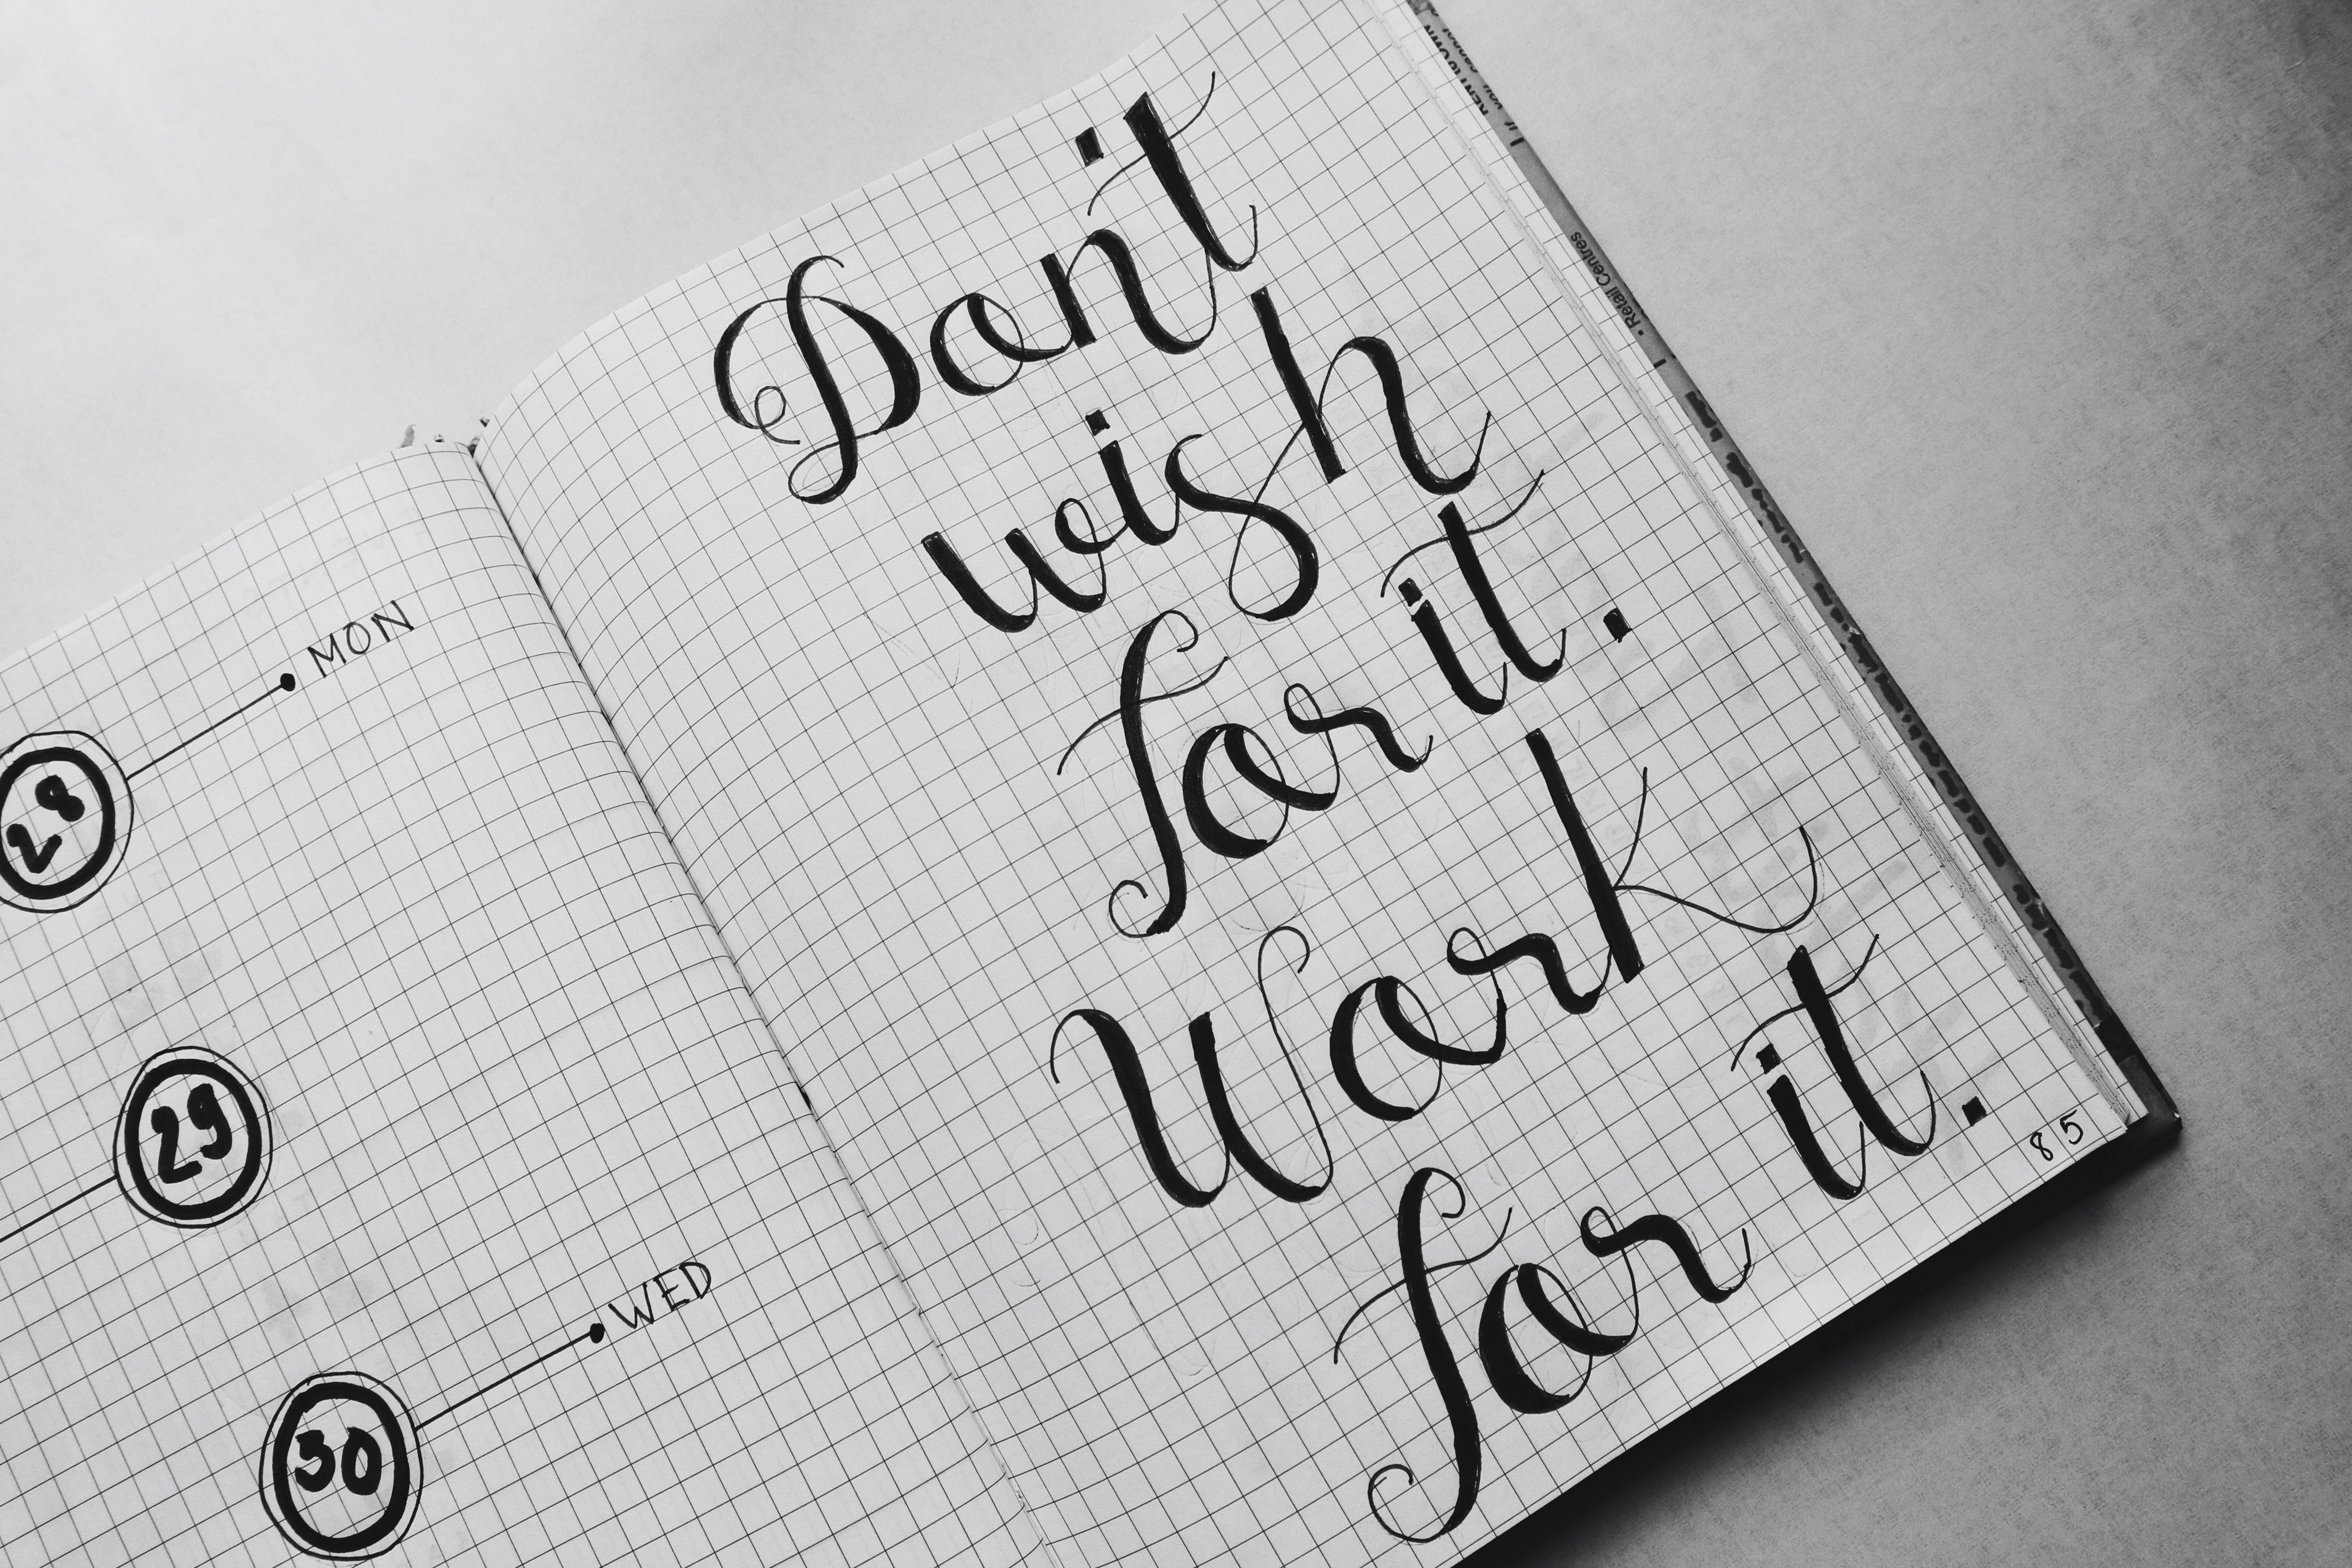 MON
28
29
WED
30
Don't
wish
for it.
Work
for it.
85
• Retail Centres